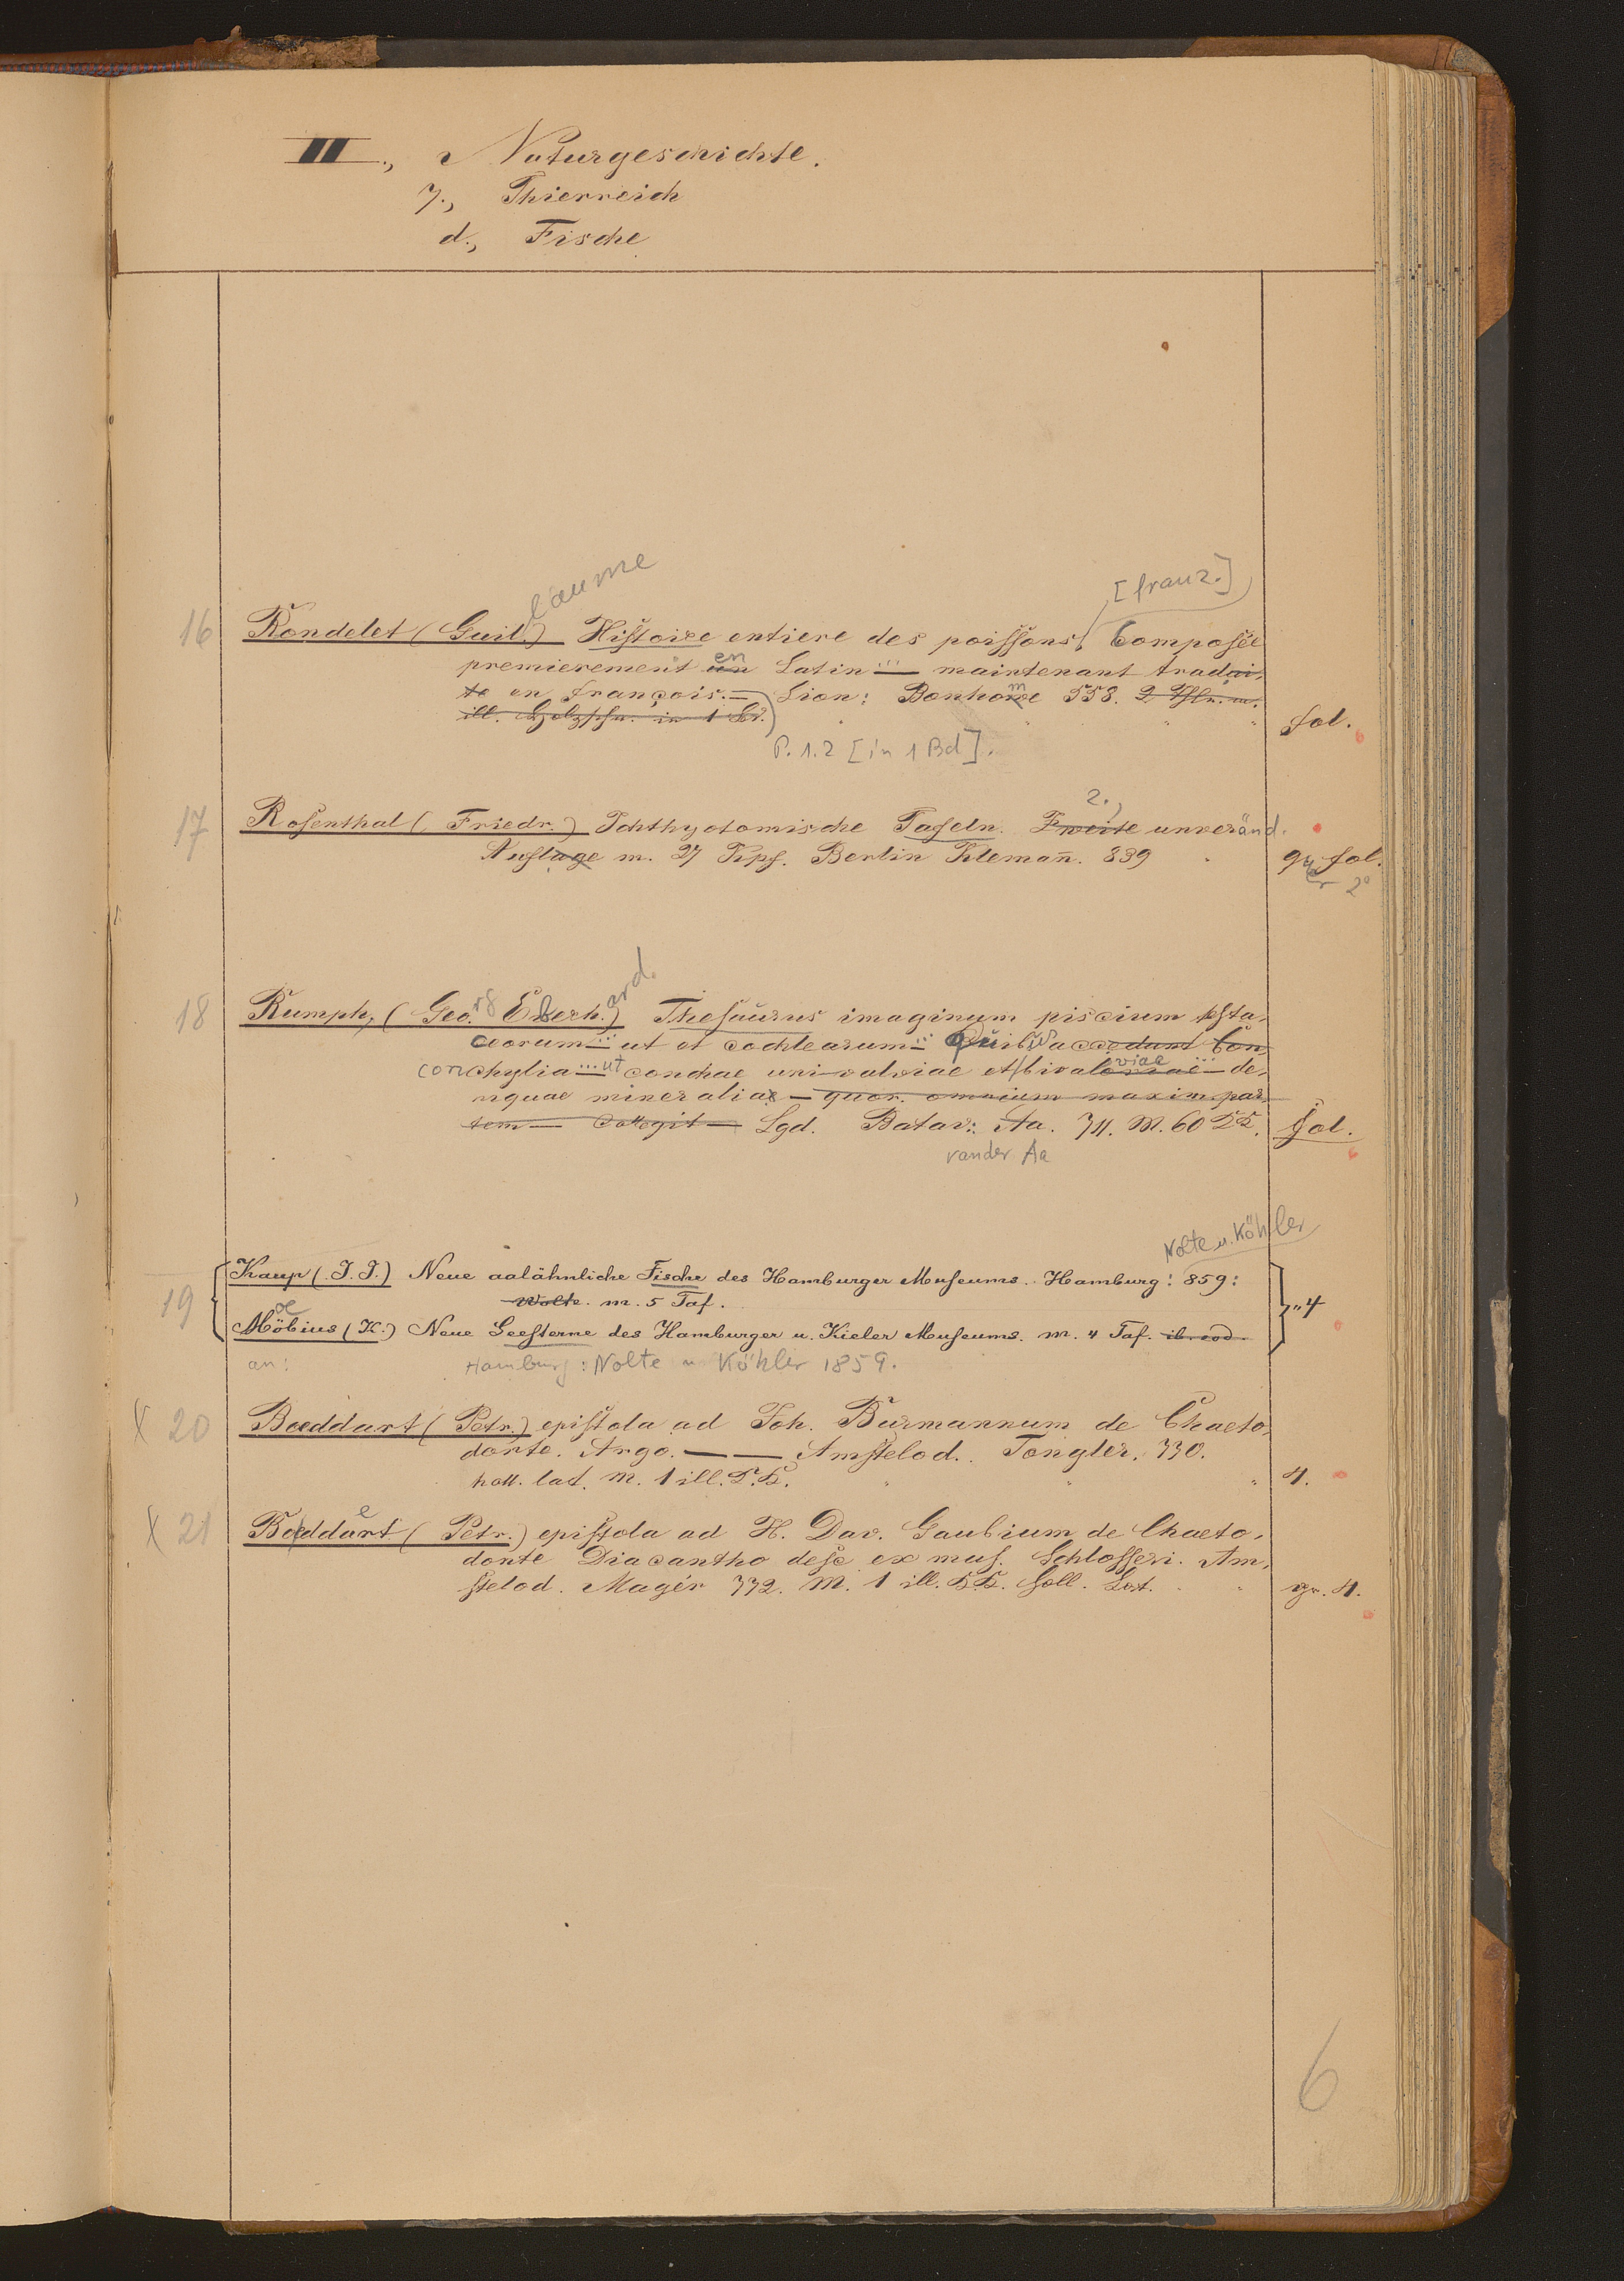 III., Naturgeschichte.
7., Thierreich
d., Fische
läume
[franz.]
16 Rondelet (Guil.) Histoire entiere des poissons Composée
en
premierement un Latin ... — maintenant tradui-
te en françois. — Lion: Bonhome 558. 2 Thle. m.
m
ill. Holzschn. in 1 Bd. fol.
P. 1.2 [in 1 Bd].
2.,
17 Rosenthal (Friedr.) Ichthyotomische Tafeln. Zweite unveränd.
Auflage m. 27 Kpf. Berlin Klemañ. 839 gr. fol.
2°
18 Rumph, (Georg Eberh.) Thesaurus imaginum piscium testa-
ard.
ceorum ... ut et cochlearum ... quibus accedunt Con-
conchylia ... ut conchae univalviae et bivalviae ... — de-
viae
nique mineralia — quor. omnium maxim. par-
tem — collegit — Lgd. Batav: Aa. 711. M. 60 fol.
vander Aa
Nolte u. Köhler
19 Kaup (J. J.) Neue aalähnliche Fische des Hamburger Museums. Hamburg: 859:
Nolte. m. 5 Taf. 4
oe
Möbius (K.) Neue Seesterne des Hamburger u. Kieler Museums. m. 4 Taf. ib. eod.
an: Hamburg: Nolte u Köhler 1859.
X 20 Boeddart (Petr.) epistola ad Joh. Burmannum de Chaeto-
donte. Argo. — — Amstelod. Tongler. 770.
holl. lat. m. 1 ill. 4.
e
X 21 Boddart (Petr.) epistola ad H. Dav. Gaubium de Chaeto-
donte Diacantho desc ex mus. Schlosseri. Am-
stelod. Magér 772. M. 1 ill. holl. Lat. gr. 4.
6